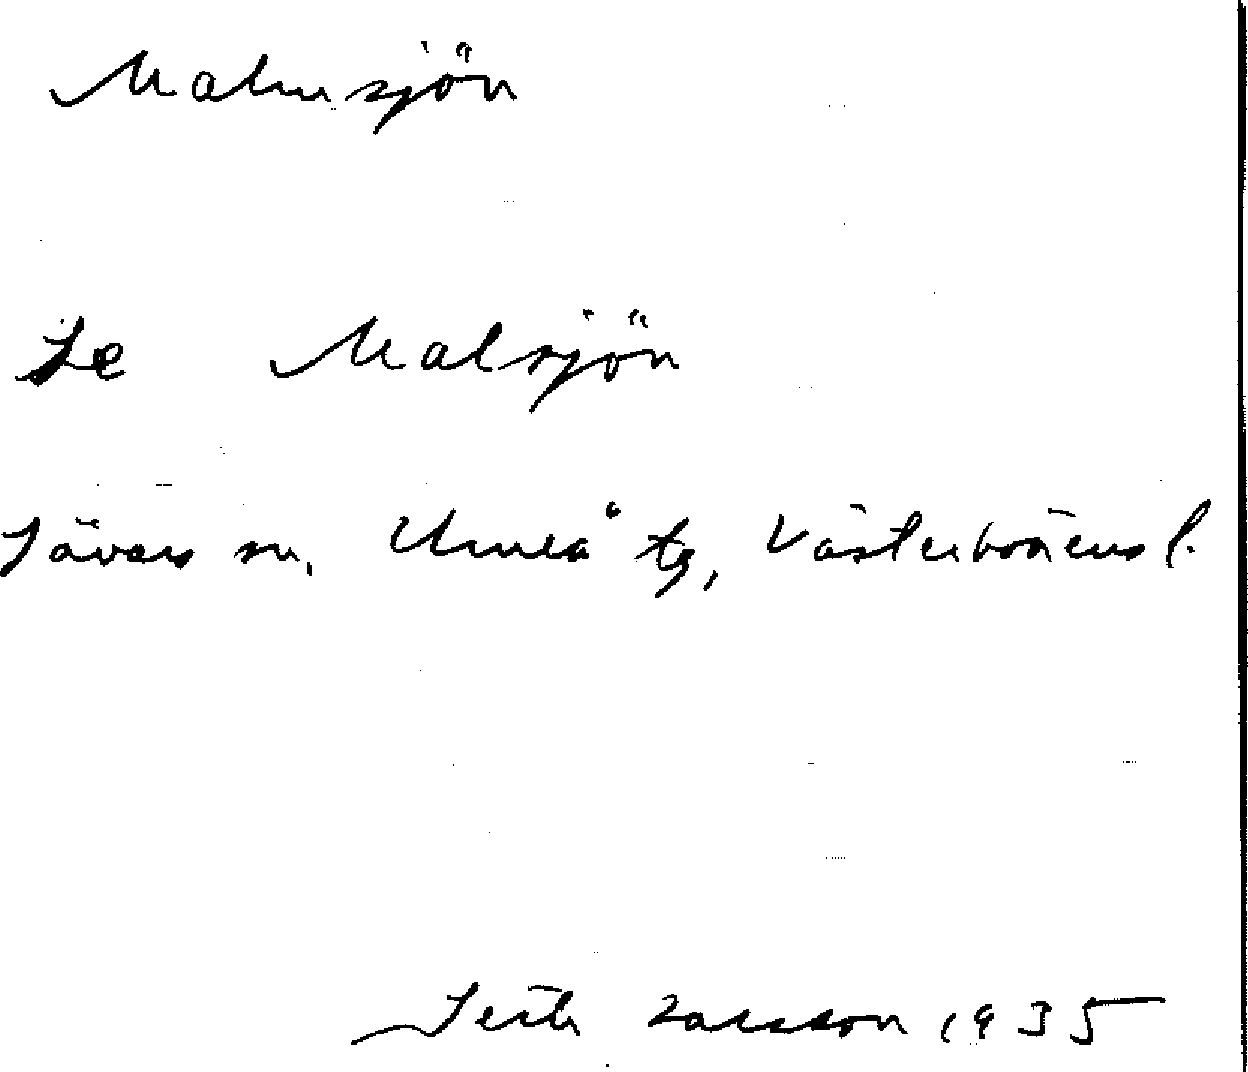 Malmsjön
Se Malsjön
Sävars sn, Umeå tg, Västerbottens l.
Seth Larsson 1935